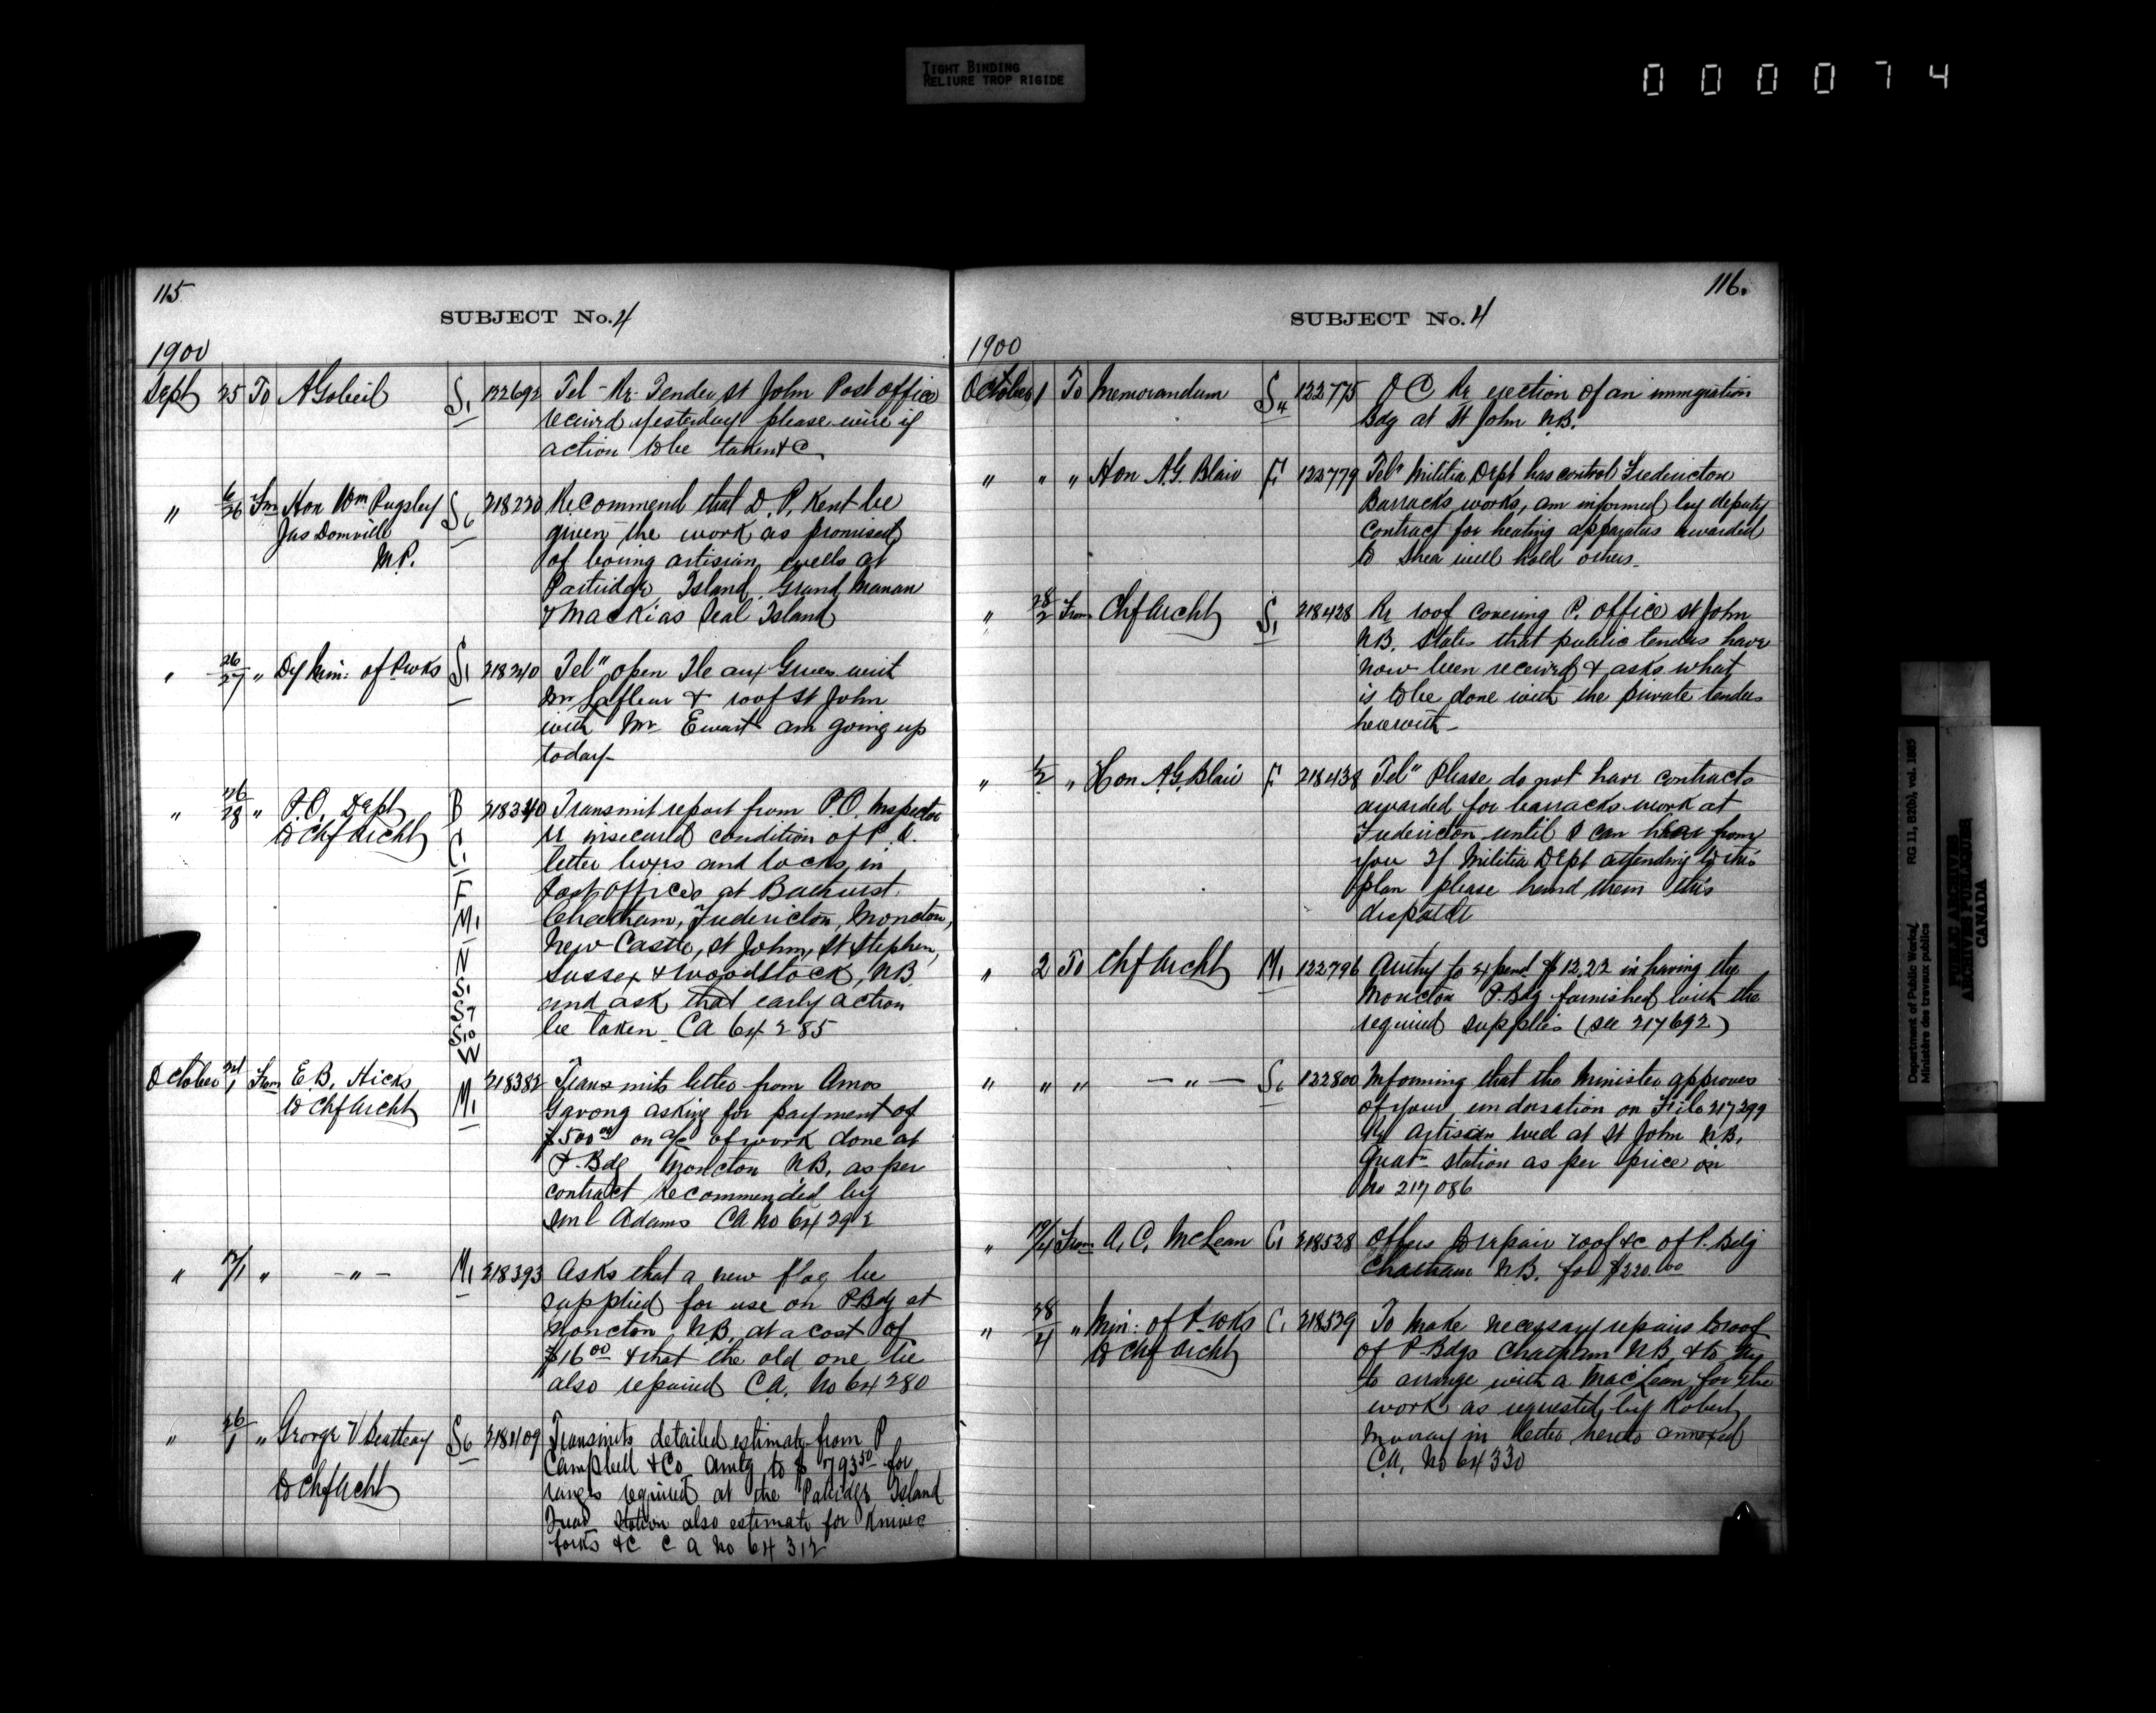 TIGHT BINDING
RELIURE TROP RIGIDE
000074
115
SUBJECT No. 4
1900
Sept 25 To A Gobeil S1 122692 Tel - Re Tender St John Post office
received yesterday please wire if
action to be taken &c
" 6/26 Fm Hon Wm Pugsley S6 218220 Recommend that D. P. Kent be
Jas Domville given the work as promised
M.P. of boring artisian wells at
Partridge Island, Grand Manan
& Mackias Seal Island
" 26/27 " Dy Min: of P wks S1 218240 Tel" open Ile aux Grues with
Mr Lafleur & roof St John
with Mr Ewart am going up
today-
" 26/28 " P.O. Dept B 218340 Transmit report from P.O. Inspector
to Chf Archt C1 re insecured condition of P.O.
letter boxes and locks in
F Post offices at Bathurst,
M1 Chatham, Fredericton, Moncton,
N New Castle, St John, St Stephen,
S1 Sussex & Woodstock, NB
S7 and ask that early action
S10 be taken CA 64285
W
October 1 From E.B. Hicks M1 218382 Transmits letter from Amos
to Chf Archt asking for payment of
$500 00 on a/c of work done at
P. Bdg Moncton N.B. as per
contract recommended by
Adams CA No 64292
" " - " - M1 218393 Asks that a new flag be
supplied for use on P. Bdg at
Moncton N.B. at a cost of
$16 00 & that the old one be
also repaired CA. No 64280
" 26/1 " George V Beatteay S6 218409 Transmits detailed estimate from P
Campbell & Co amtg to $793 50 for
to Chf Archt ranges required at the Patridge Island
Quar Station also estimate for Knives
forks &c CA No 64312
116.
SUBJECT No. 4
1900
October 1 To Memorandum S4 122775 O C Re erection of an immigration
Bdg at St John N.B.
" " " Hon A.G. Blair F 122779 Tel" Militia Dept has control Fredericton
Barracks works, am informed by deputy
contract for heating apparatus awarded
to Shea will hold others-
" 28/2 From Chf Archt S1 218428 Re roof covering P. office St John
N.B. States that public tenders have
now been received & asks what
is to be done with the private tenders
herewith-
" 1/2 " Hon A.G. Blair F 218438 Tel" Please do not have contracts
awarded for barracks work at
Fredericton until I can hear from
you If Militia Dept attending to this
plan please hand them this
dispatch
" 2 To Chf Archt M1 122796 Authy to expend $12.22 in having the
Moncton P. Bdg furnished with the
required supplies (see 217692)
" " " - " - S6 122800 Informing that the Minister approves
of your endorsation on File 217299
Re Artisian well at St John N.B.
Quatn station as per price on
No 217086
" 19/4 From A. C. McLean C1 218528 Offers to repair roof &c of P. Bdg
Chatham N.B. for $220.00
" 28/4 " Min: of P. wks C1 218539 To make necessary repairs to roof
to Chf Archt of P. Bdgs Chatham N.B. & to try
to arrange with a MacLean for the
work as requested by Robert
Murray in letter hereto annexed
CA. No 64330
Department of Public Works/ RG 11, B2(b), vol. 1885
Ministère des travaux publics
PUBLIC ARCHIVES
ARCHIVES PUBLIQUES
CANADA